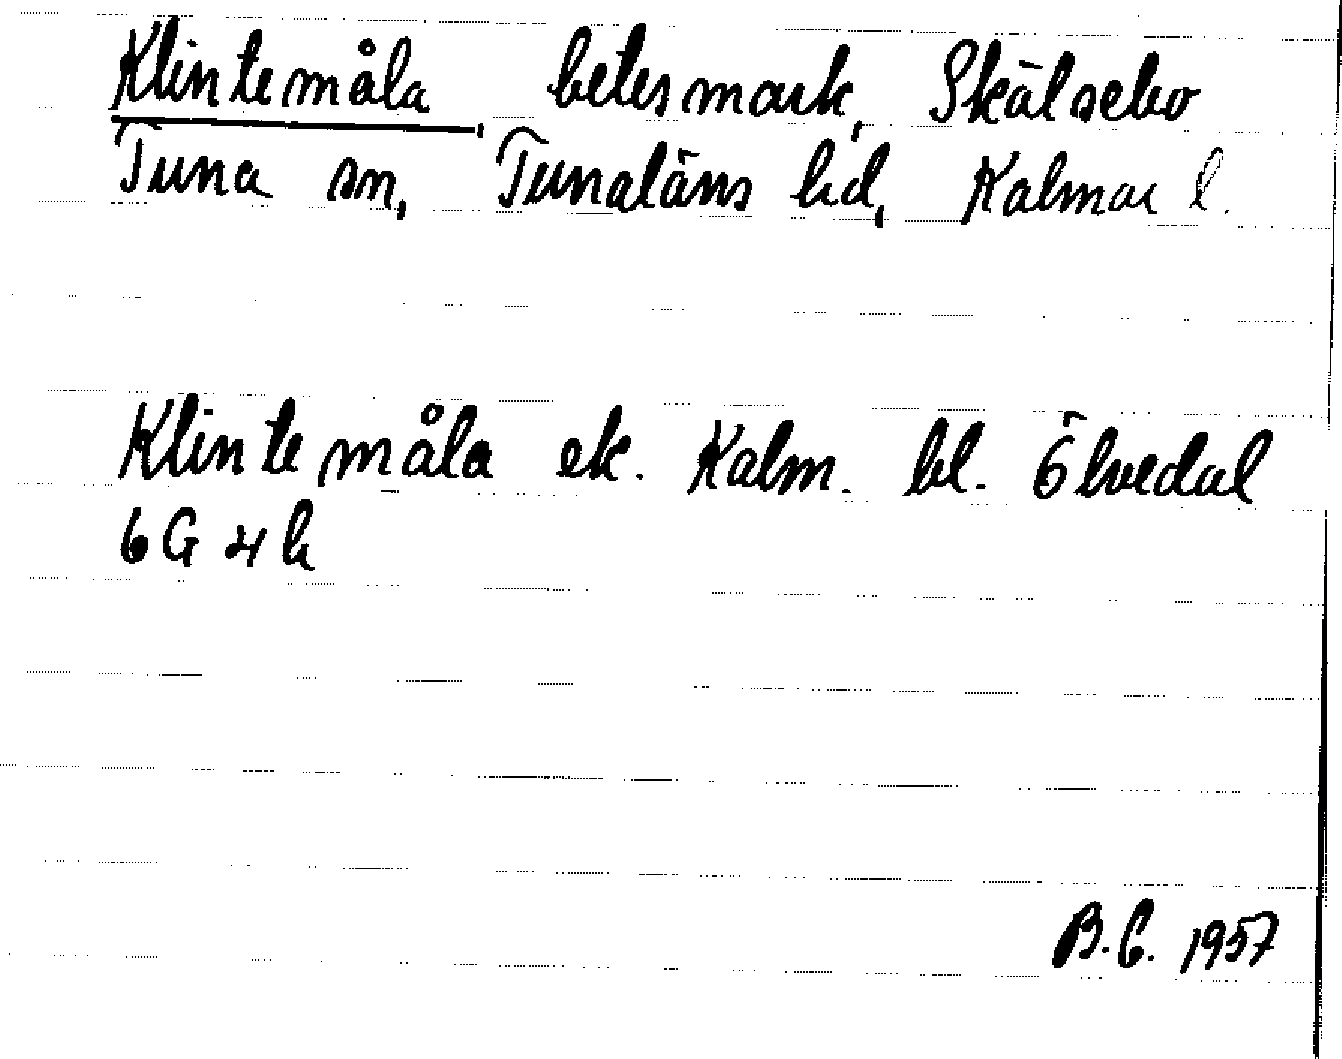 Klintemåla, betesmark, Skälsebo
Tuna sn, Tunaläns hd, Kalmar l.
Klintemåla ek. Kalm. bl. Ölvedal
6G 4h
B.E. 1957